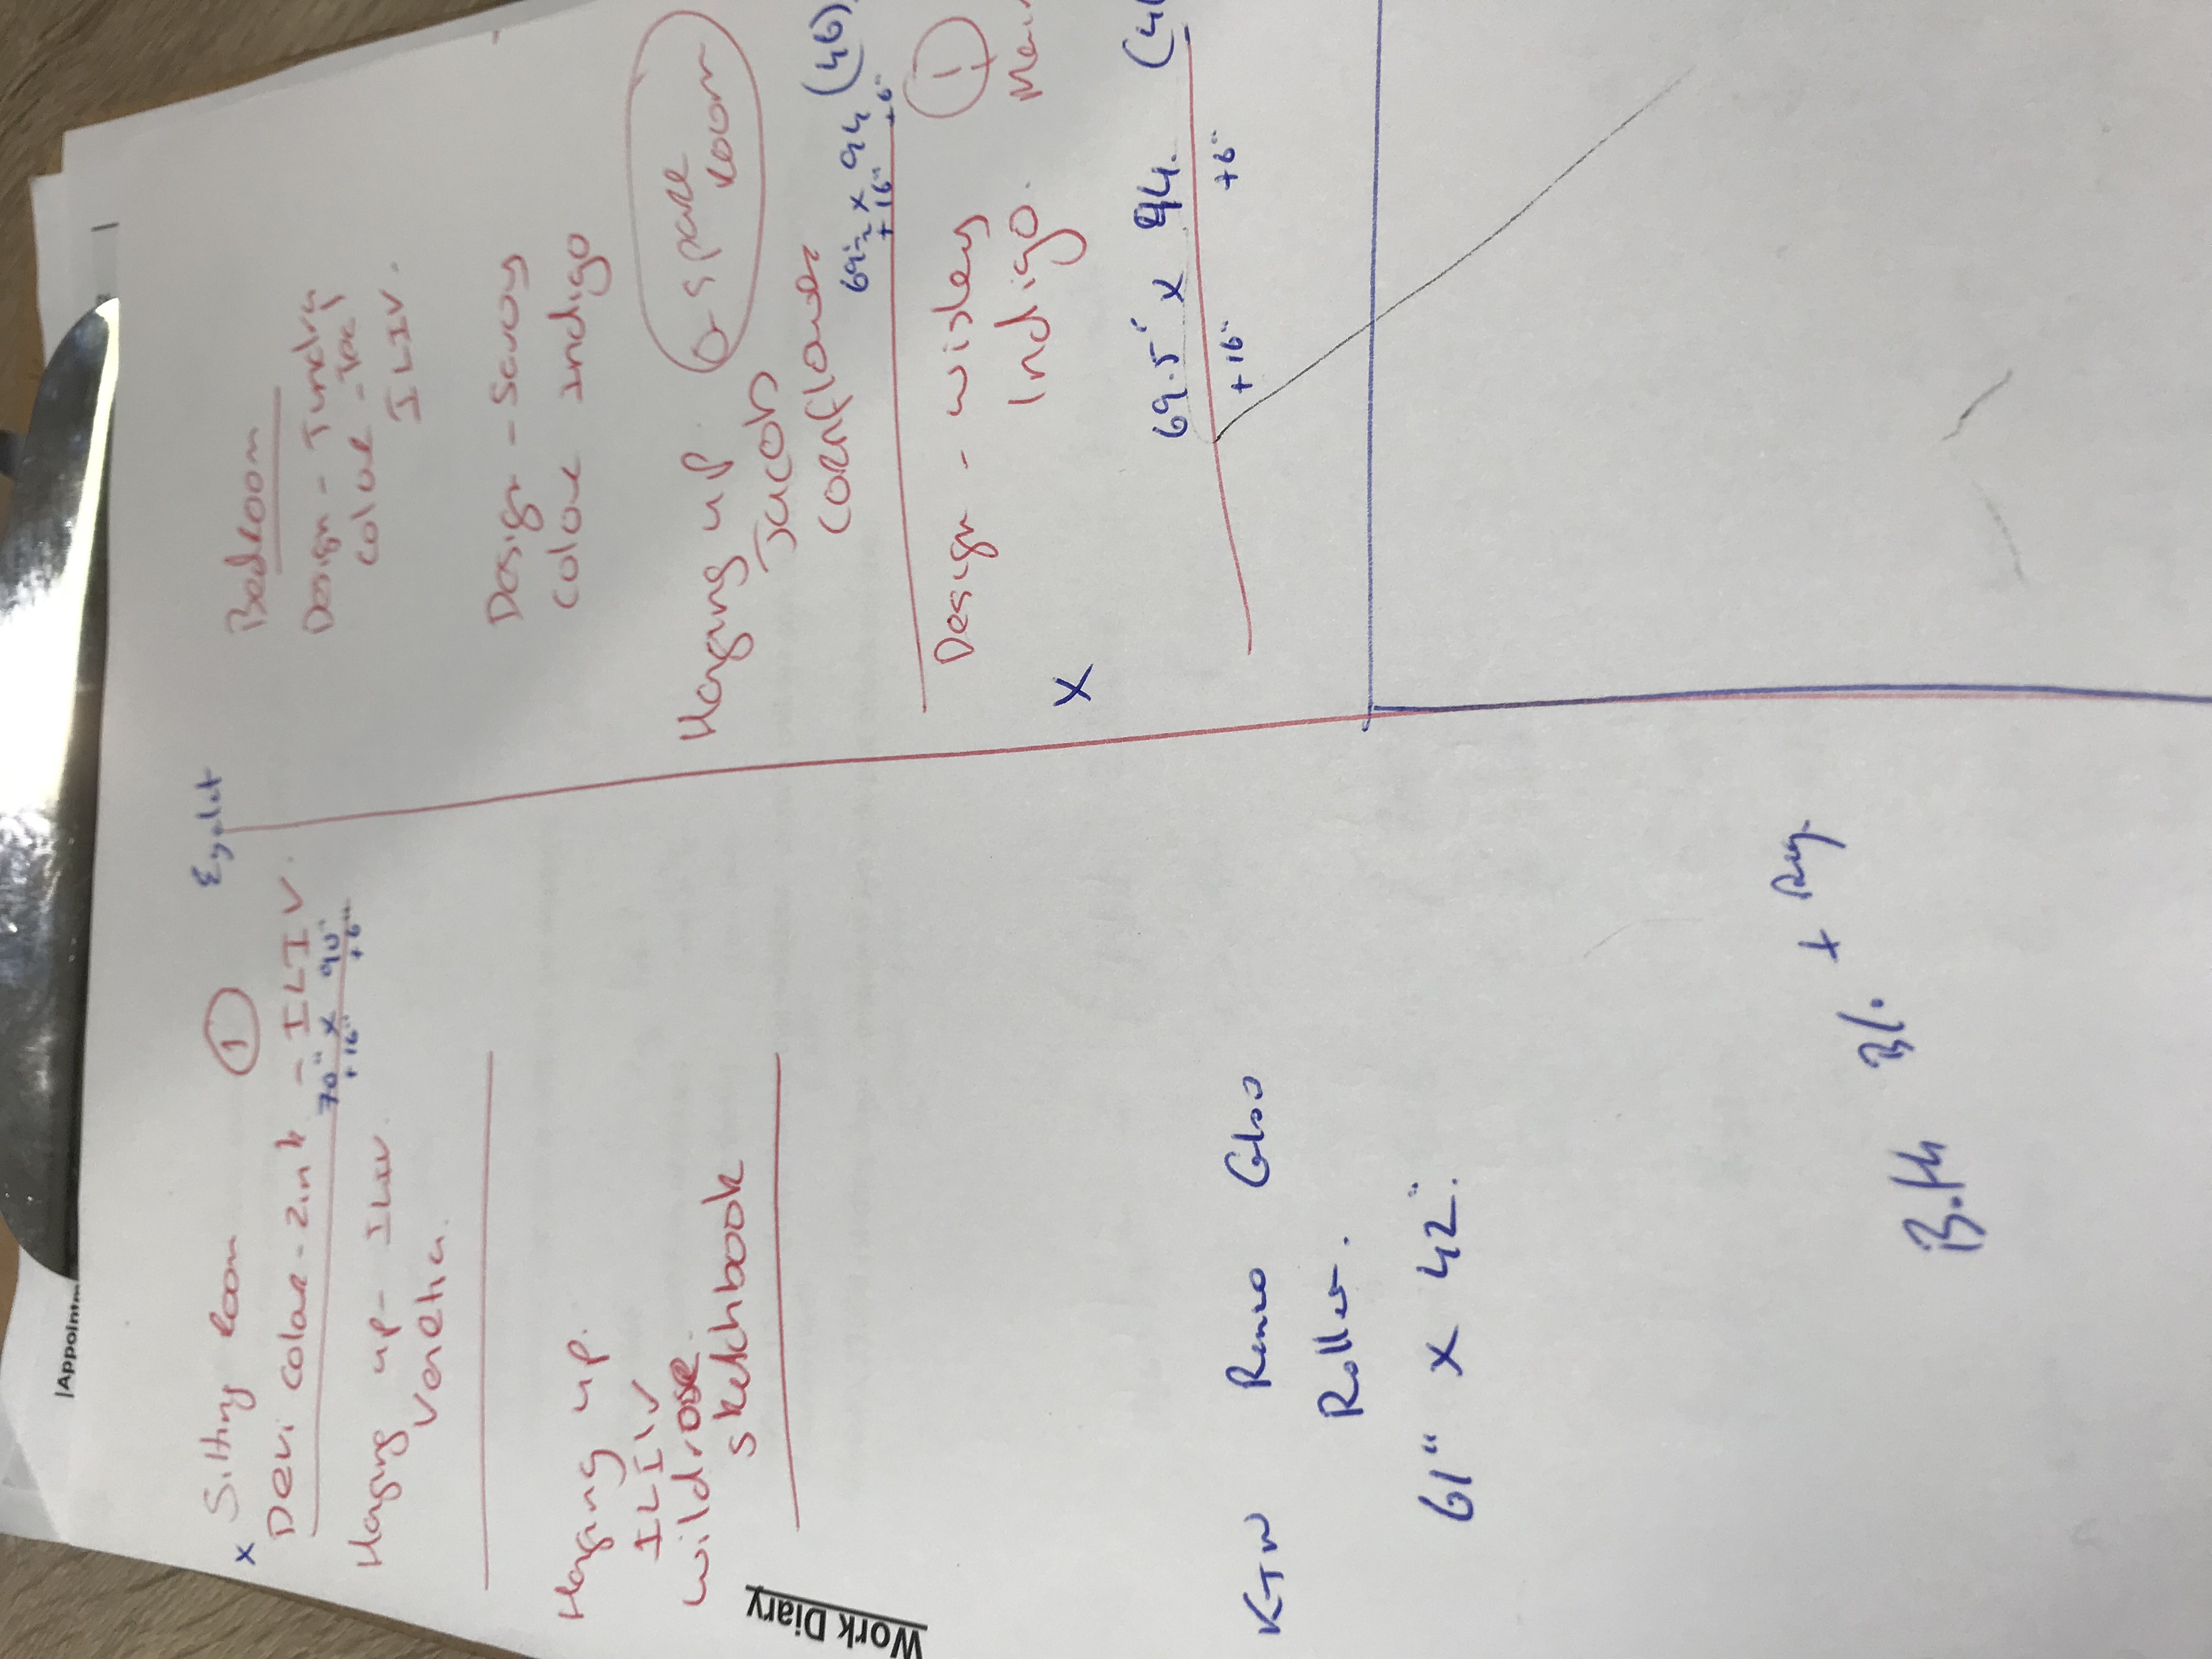 |Appointm
x Sitting Room ①
Eyelet
Devi colour - Zink - ILIV.
70" x 90"
+16" +6"
Hanging up - ILIV
Venetia.
Hanging up.
ILIV
Wildrose
sketchbook
Work Diary
KTN Remo Gloo
Roller.
61" x 42".
B.H 3%. +
Bedroom
Design - Tundra
Colour - Teal
ILIV.
Design - Savoy
Colour indigo
Hanging up. spare Room
Jacob
cornflower
69½ x 94 (46)
+16" +6"
Design - wisley ①
x Indigo.
69.5" x 94.
+16" +6"